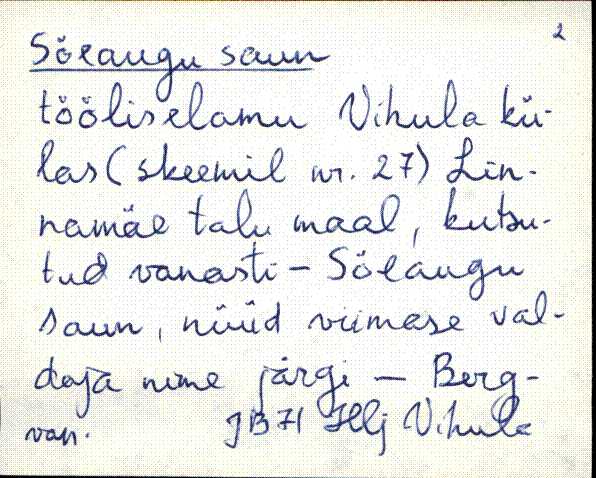 2
Söeaugu saun
tööliselamu Vihula kü-
las (skeemil nr. 27) Lin-
namäe talu maal, kutsu-
tud vanasti – Söeaugu
saun, nüüd viimase val-
daja nime järgi – Berg-
van. JB 71 Hlj Vihula